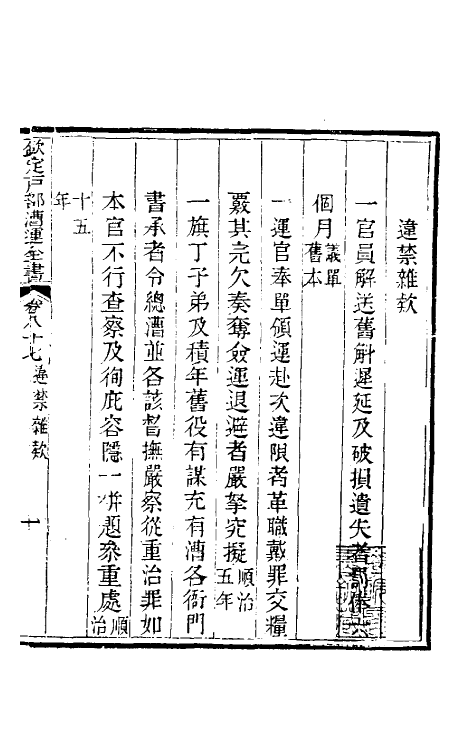 違禁雜欵
一官員解送舊斛遲延及破損遺失者罰俸六
個月議單舊本
一運官奉單領運赴次違限者革職戴罪交糧
覈其完欠奏奪僉運退避者嚴拏究擬順治五年
一旗丁子弟及積年舊役有謀充有漕各衙門
書承者令總漕並各該督撫嚴察從重治罪如
本官不行查察及徇庇容隱一併題叅重處順治
十五年
欽定戶部漕運全書 卷八十七 違禁雜欵 十